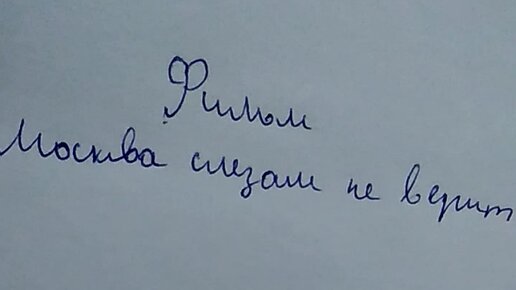 Фильм
Москва слезам не верит